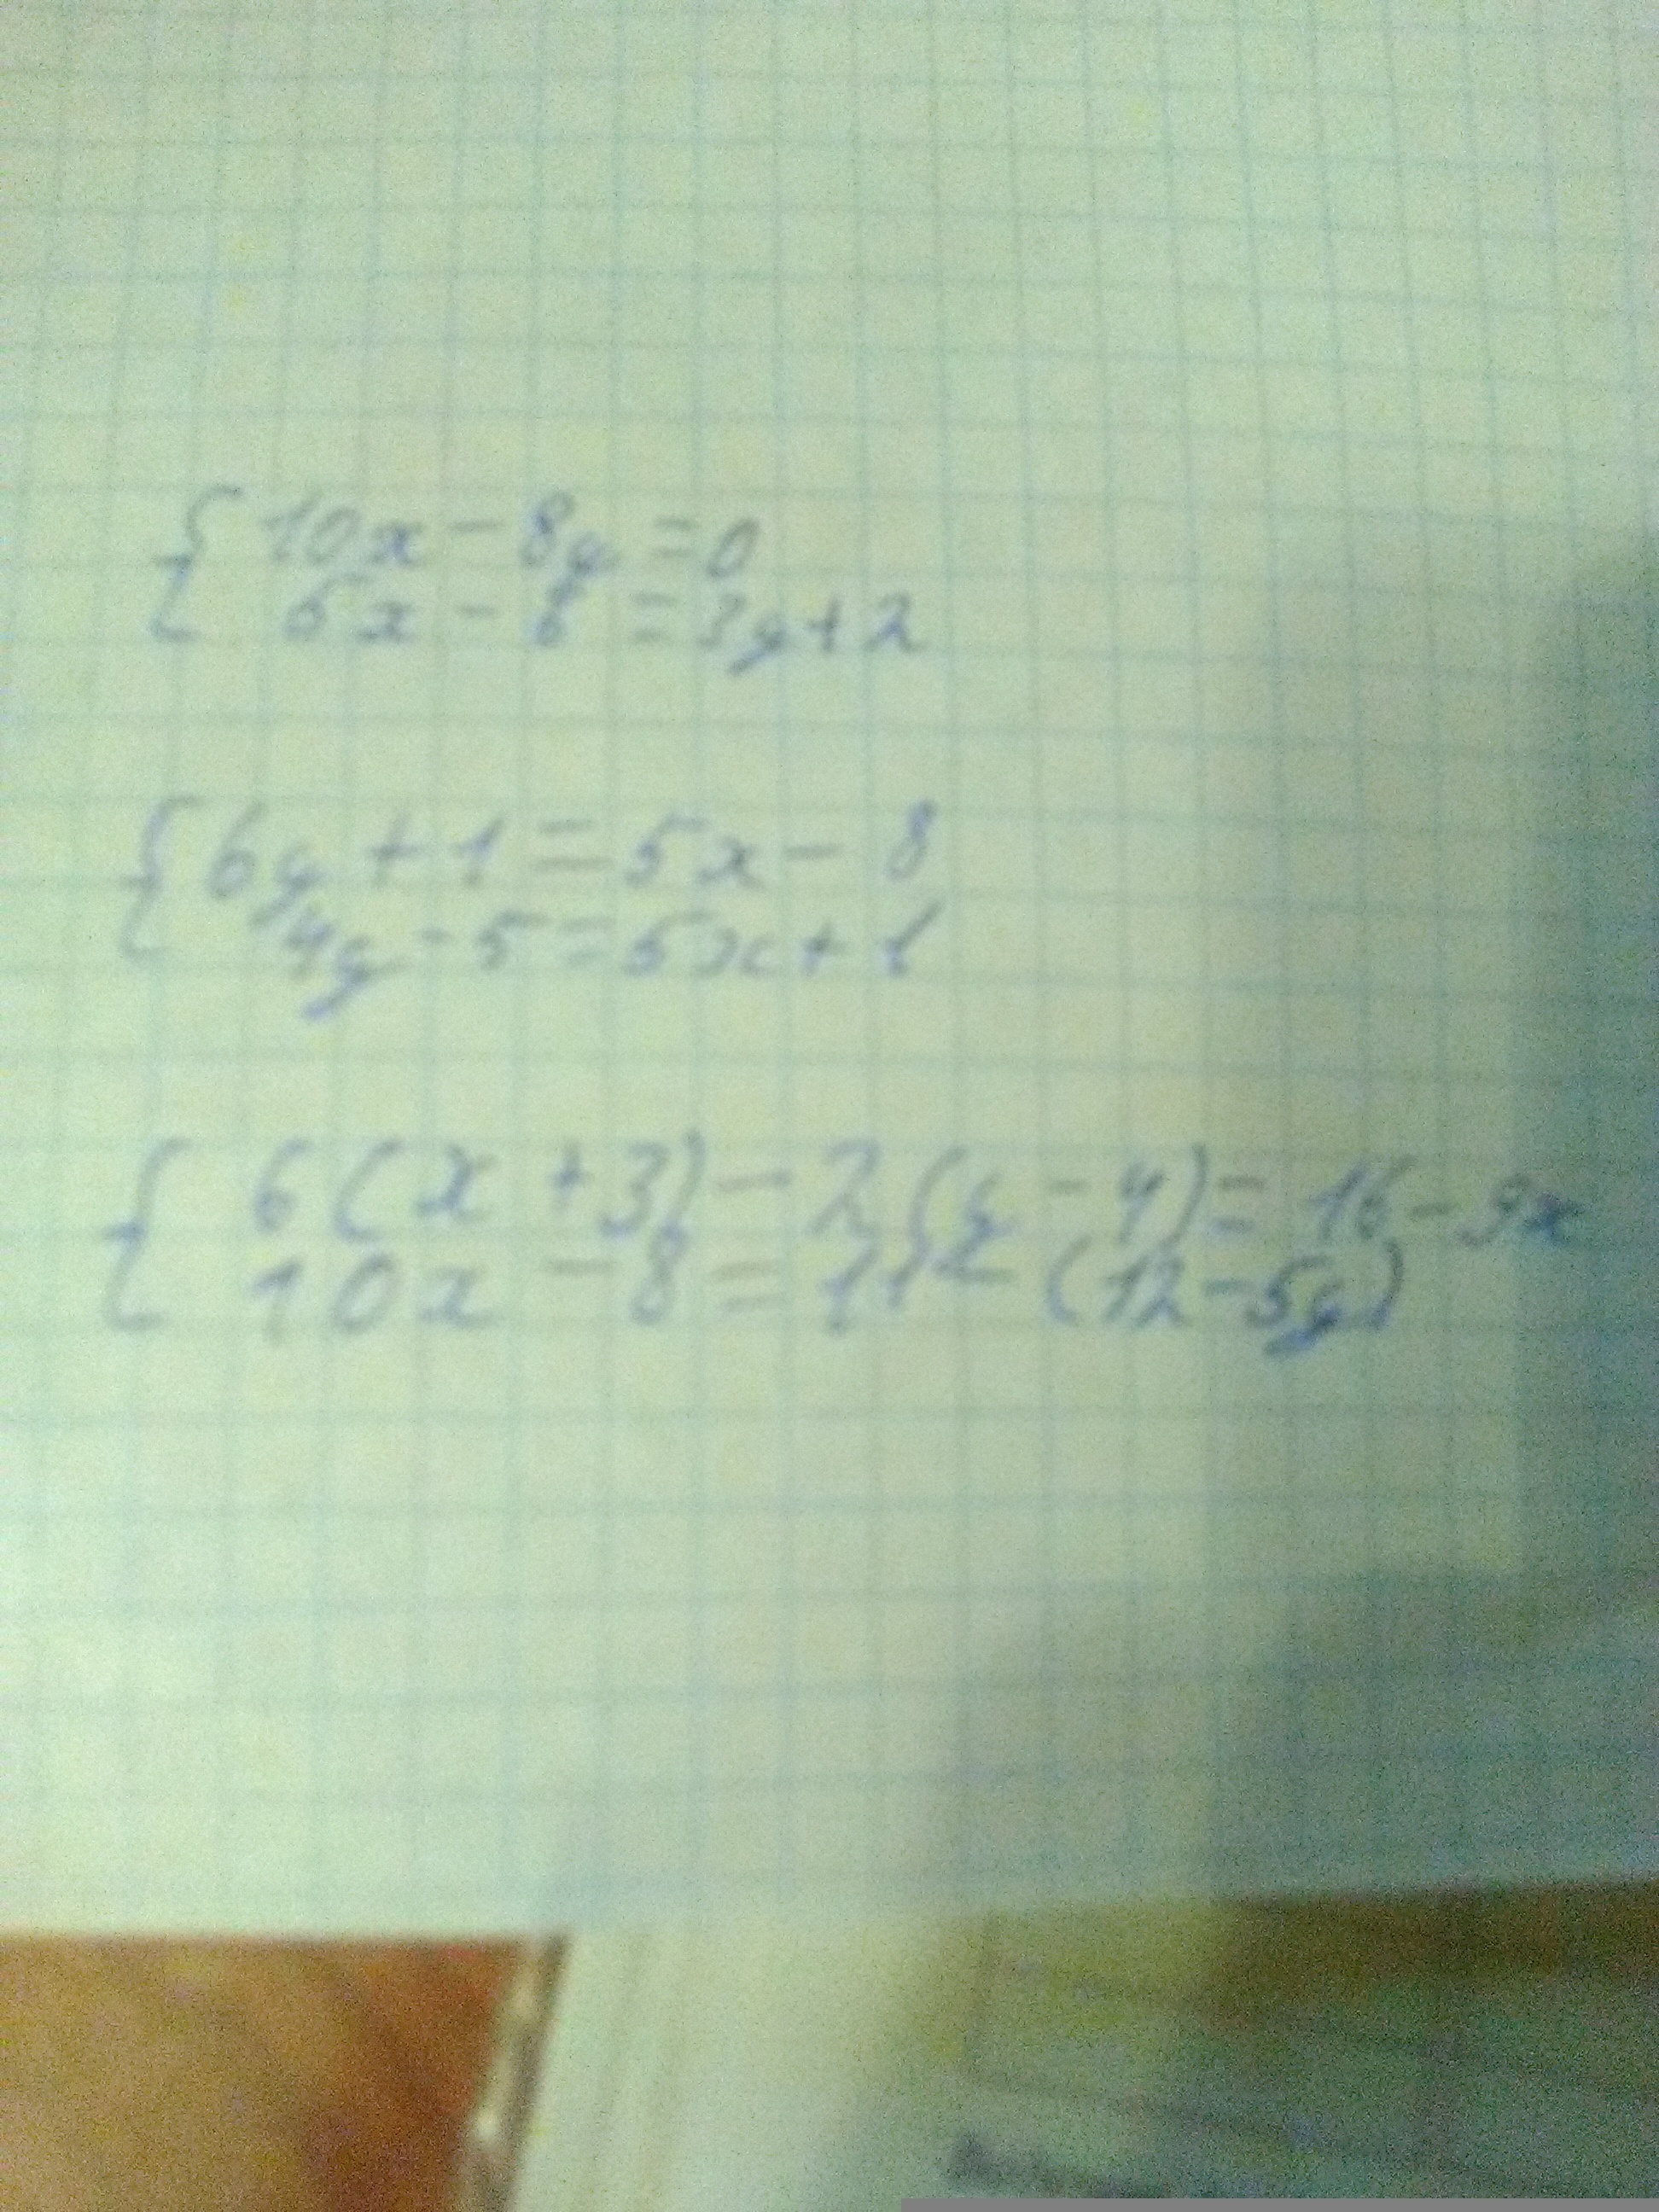 10x - 8y = 0
5x - 8 = 3y + 2
6y + 1 = 5x - 8
4y - 5 = 5x + 6
6(x + 3) - 2(y - 4) = 16 - 9x
10x - 8 = 11 - (12 - 5y)